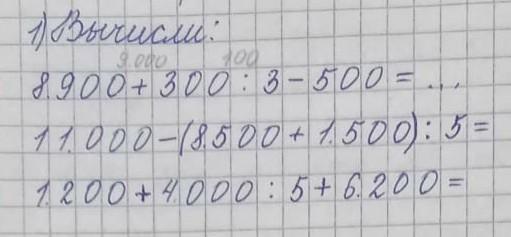 1) Вычисли:
9.000 100
8.900 + 300 : 3 - 500 = ...
11.000 - (8.500 + 1.500) : 5 =
1.200 + 4.000 : 5 + 6.200 =